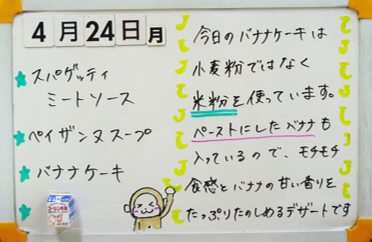 4月24日月
スパゲッティ
ミートソース
ペイザンヌスープ
バナナケーキ
今日のバナナケーキは
小麦粉ではなく
米粉を使っています。
ペーストにしたバナナも
入っているので、モチモチ
食感とバナナの甘い香りを
たっぷりたのしめるデザートです